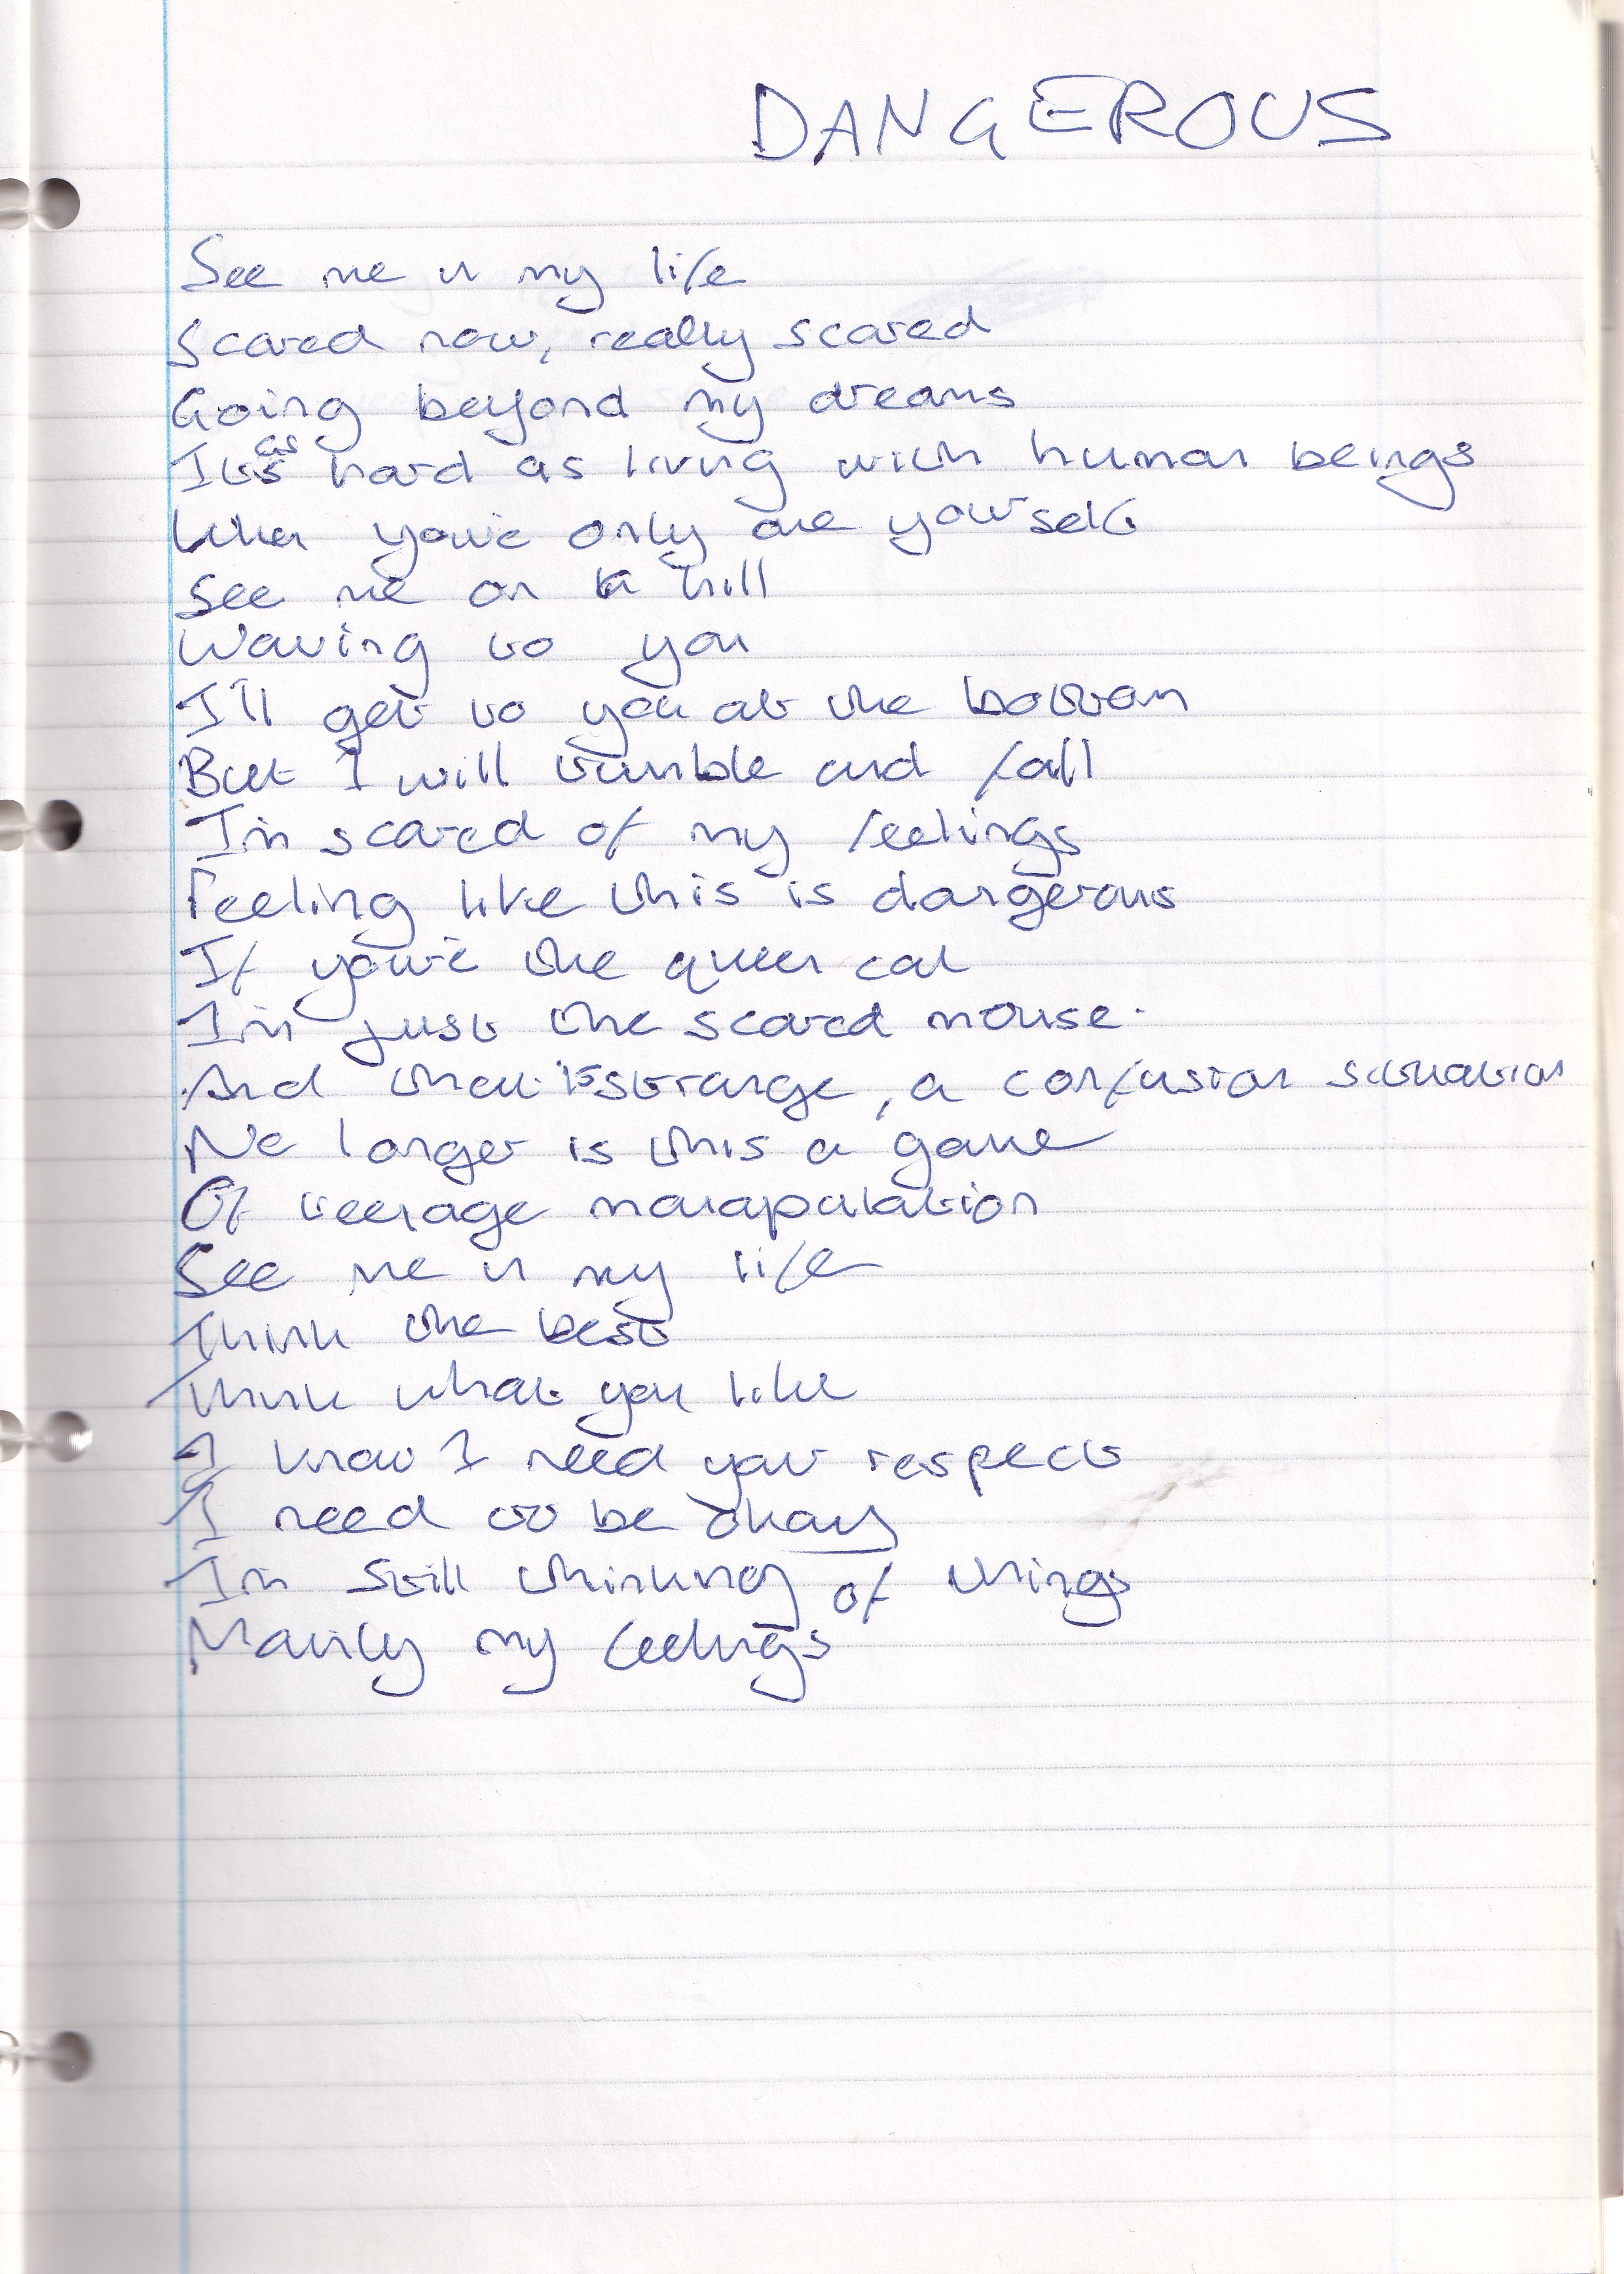 DANGEROUS
See me in my life
Scared now, really scared
Going beyond my dreams
Its as hard as living with human beings
When you're only one yourself
See me on a hill
Waving to you
I'll get to you at the bottom
But I will tumble and fall
I'm scared of my feelings
Feeling like this is dangerous
If you're the queen cat
I'm just the scared mouse.
And that is strange, a confusion situation
No longer is this a game
Of teenage manapulation
See me in my life
Think the best
Think what you like
I know I need your respect
I need to be okay
I'm still thinking of things
Mainly my feelings